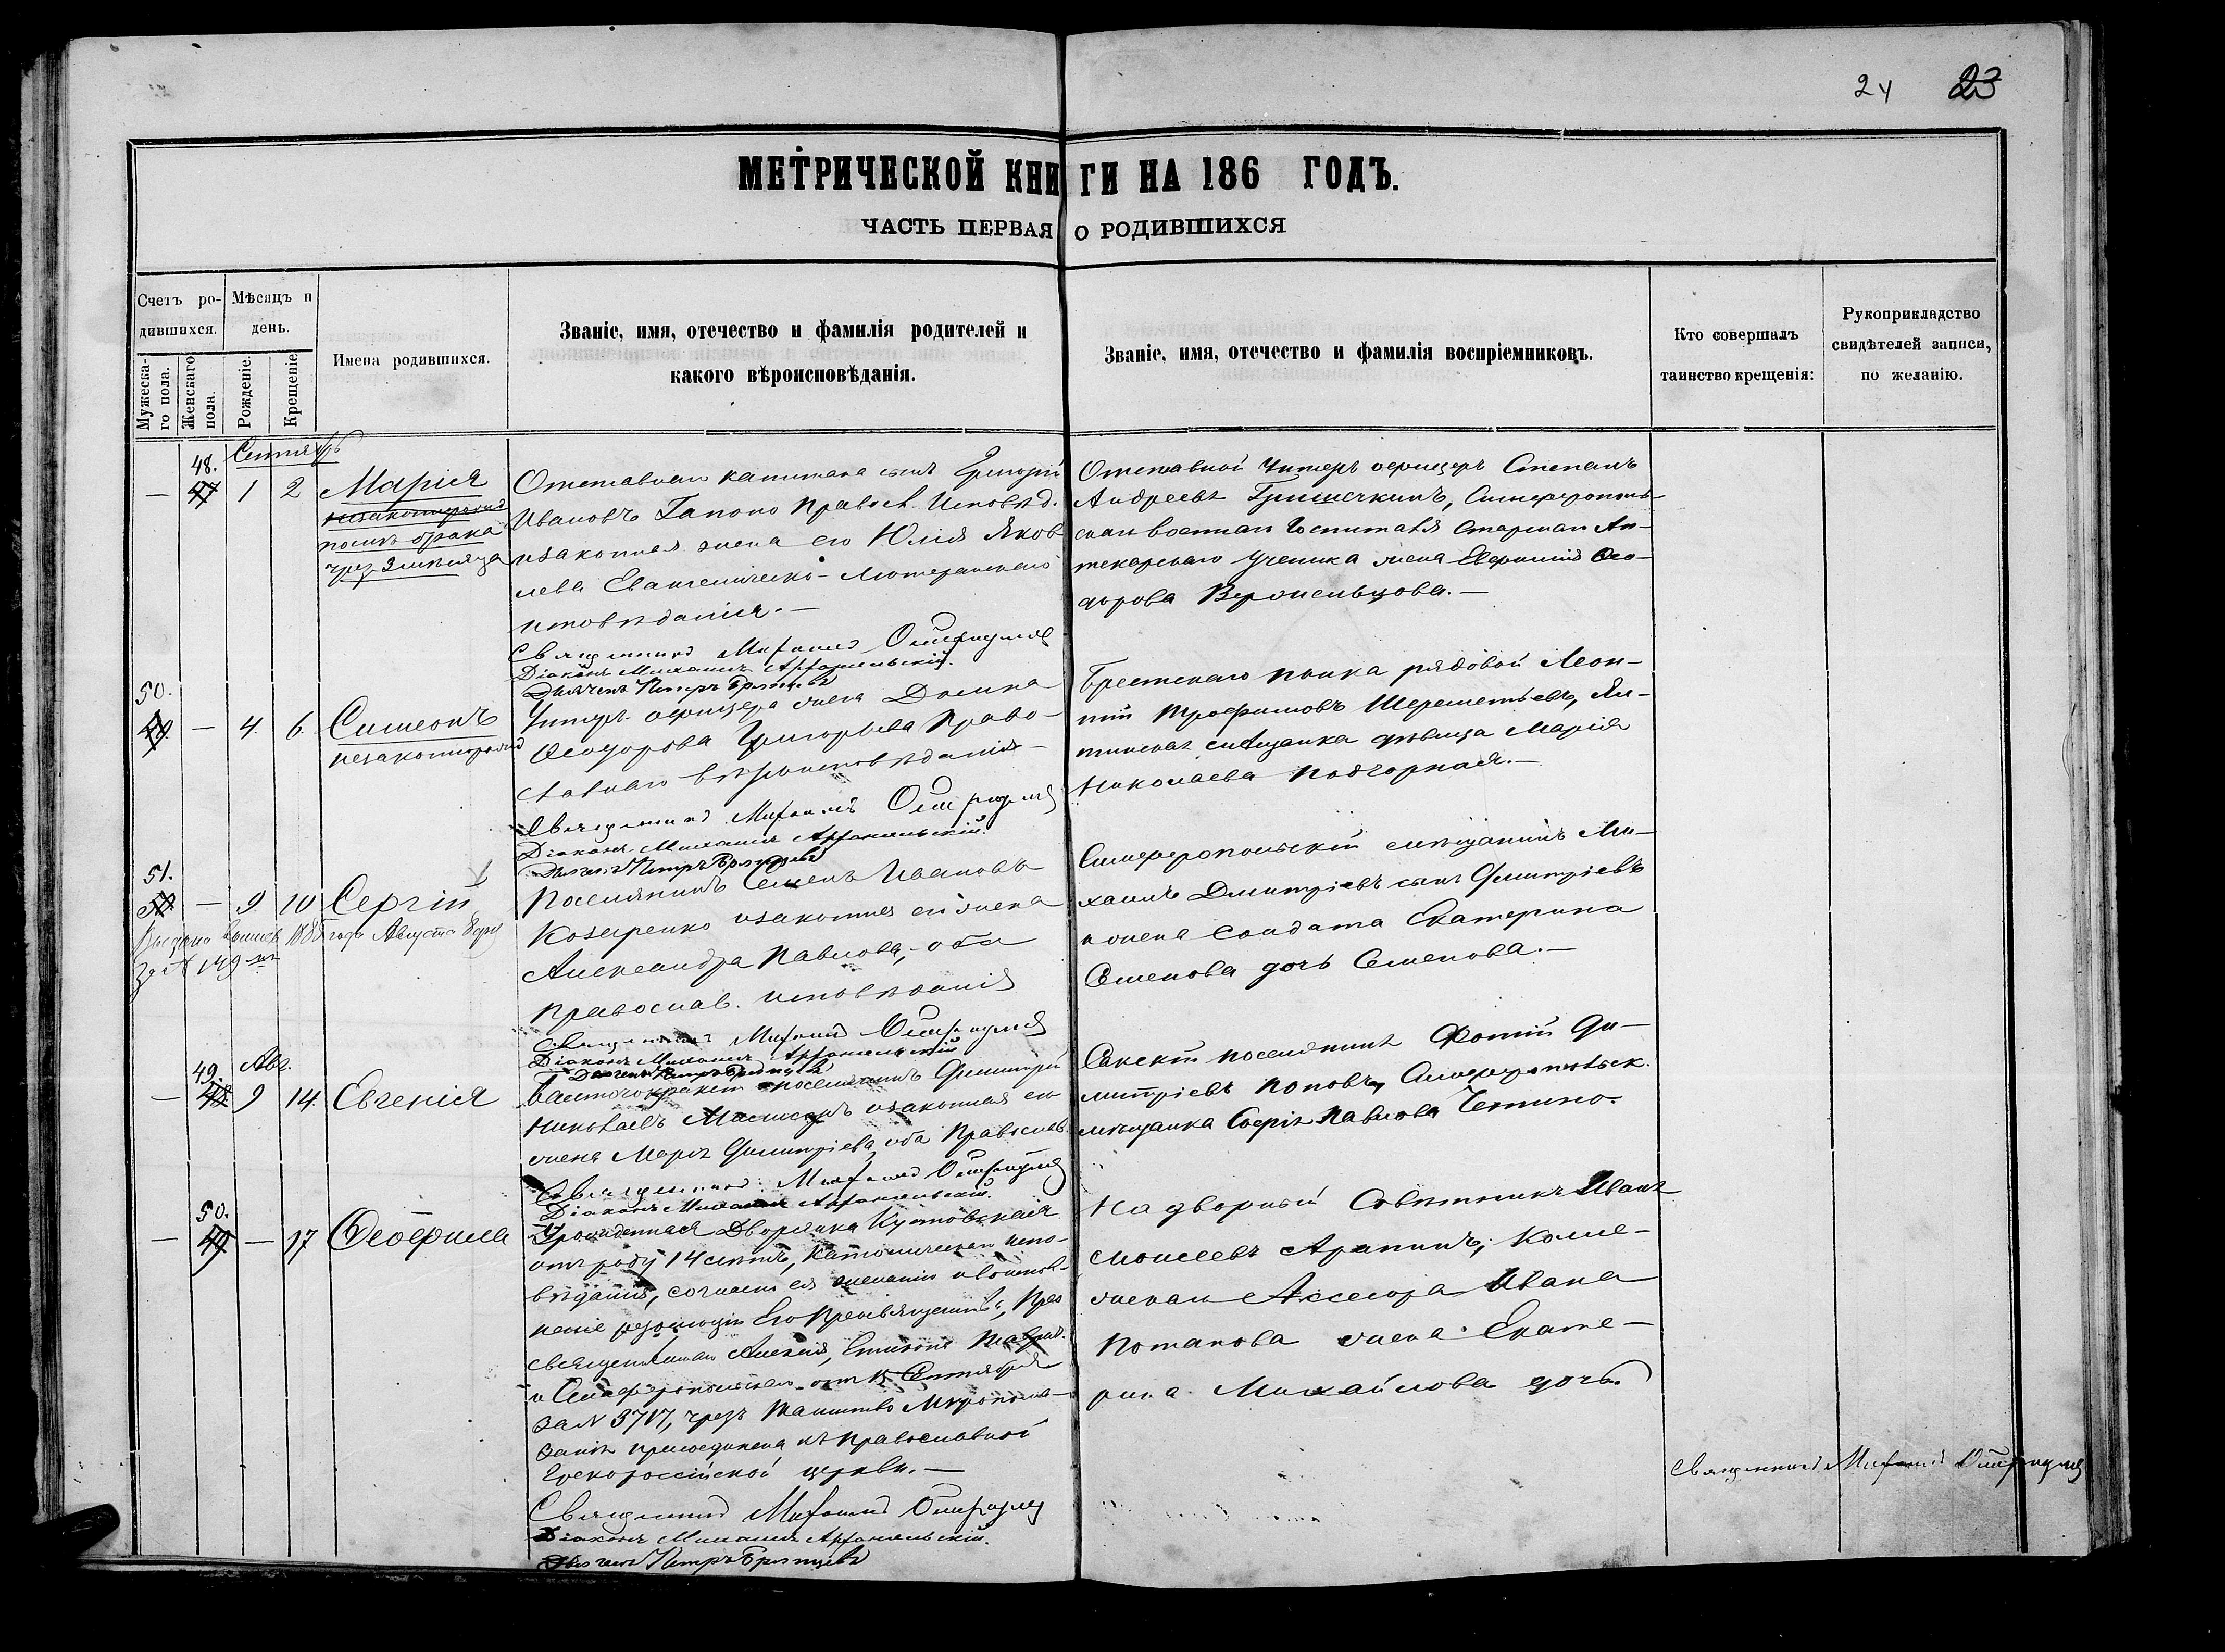 24 23
МЕТРИЧЕСКОЙ КНИГИ НА 186 ГОДЪ.
ЧАСТЬ ПЕРВАЯ О РОДИВШИХСЯ
Счетъ ро-
дившихся.
Мужеска-
го пола.
Женскаго
пола.
Мѣсяцъ и
день.
Рожденіе.
Крещеніе.
Имена родившихся.
Званіе, имя, отечество и фамилія родителей и
какого вѣроисповѣданія.
Званіе, имя, отечество и фамилія воспріемниковъ.
Кто совершалъ
таинство крещенія:
Рукоприкладство
свидѣтелей записи,
по желанію.
Сентябрь
48.
— 47 1 2 Марія
послѣ брака
чрез мѣсяца
Капитана сынъ Григорій
Ивановъ Гапоно Правосл. Исповѣд.
изаконная жена его Юлія Яков
лева Евангелическо-Лютеранскаго
исповѣданія.—
Священникъ
Діаконъ Михаилъ Архангельскій.
Петръ Брянцевъ
Отставной Унтеръ офицеръ Степанъ
Андреевъ Гришечкинъ, Симферополь-
скаго военнаго Госпиталя старшаго Ап-
текарскаго Ученика жена Евфимія Ѳео-
дорова
50.
49 — 4. 6. Симеонъ
незаконнорожд
Унтеръ-офицера жена Домна
Ѳеодорова Григорьева Право-
славнаго вѣроисповѣданія—
Священникъ
Діаконъ Михаилъ Архангельскій.
Петръ Брянцевъ
Брестскаго полка рядовой Леон-
тій Трофимовъ Шереметьевъ, Ял-
тинская мѣщанка дѣвица Марія
Николаева Подгорная.—
51.
50 — 9. 10 Сергій
1885 года Августа
За № 149
Поселянинъ Семенъ Ивановъ
изаконная его жена
Александра Павлова, оба
православ. исповѣданія
Священникъ
Діаконъ Михаилъ Архангельскій
Петръ Брянцевъ
Симферопольскій мѣщанинъ Ми-
хаилъ Дмитріевъ сынъ Димитріевъ
и жена солдата Екатерина
Семенова дочь Семенова.—
Авг.
49.
— 48 9 14. Евгенія
поселянинъ Димитрій
Николаевъ изаконная его
жена Марія Димитріева, оба Православ.
Священникъ
Діаконъ Михаилъ Архангельскій.
поселянинъ Фотій Ди-
митріевъ Поповъ, Симферопольск.
мѣщанка Софія Павлова
50.
— 49 — 17 Ѳеофила
Урожденная Дворянка
отъ роду 14 лѣтъ, Католическаго испо-
вѣданія, согласно ея желанію
резолюціи Его Преосвященства, Прео
священнаго Алексія, Епископа Таврич.
и Симферопольскаго отъ 15 Сентября
за № 3717, чрезъ таинство Мѵропома-
занія присоединена къ православной
Грекороссійской церкви.—
Священникъ
Діаконъ Михаилъ Архангельскій.
Петръ Брянцевъ
Надворный Совѣтникъ Иванъ
Моисеевъ Арапинъ; Колле-
жскаго Ассесора Ивана
Потапова жена Екате-
рина Михайлова дочь.
Священникъ